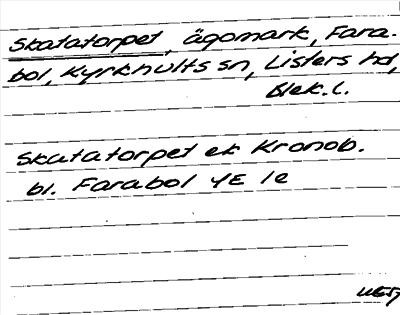 Skatatorpet, ägomark, Fara-
bol, Kyrkhults sn, Listers hd,
Blek.l.
Skatatorpet ek Kronob.
bl. Farabol 4E 1e